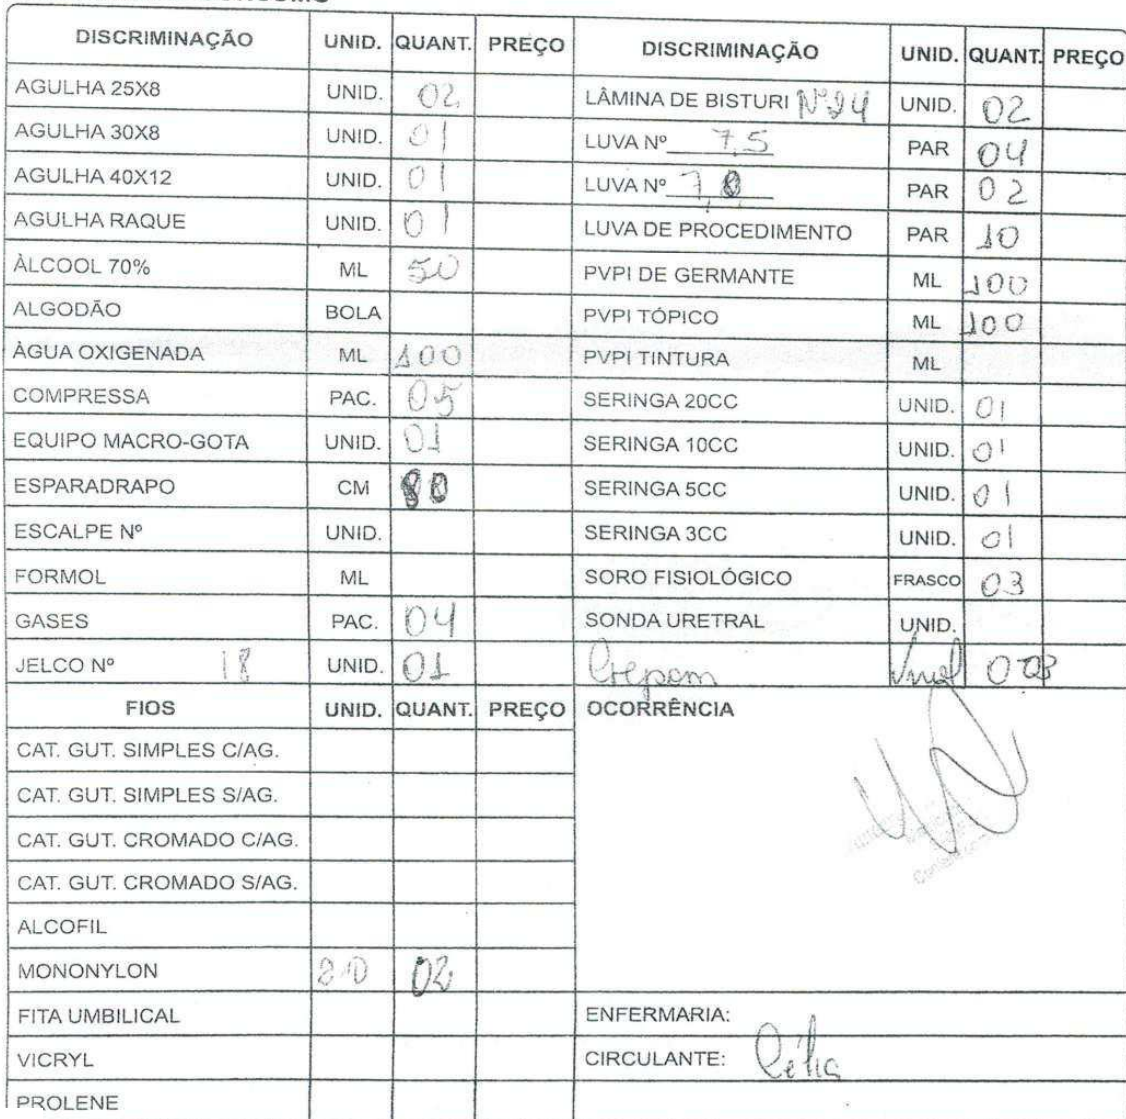 DISCRIMINAÇÃO UNID. QUANT. PREÇO DISCRIMINAÇÃO UNID. QUANT. PREÇO
AGULHA 25X8 UNID. 02 LÂMINA DE BISTURI Nº24 UNID. 02
AGULHA 30X8 UNID. 01 LUVA Nº 7,5 PAR 04
AGULHA 40X12 UNID. 01 LUVA Nº 7,0 PAR 02
AGULHA RAQUE UNID. 01 LUVA DE PROCEDIMENTO PAR 10
ÀLCOOL 70% ML 50 PVPI DE GERMANTE ML 100
ALGODÃO BOLA PVPI TÓPICO ML 100
ÀGUA OXIGENADA ML 100 PVPI TINTURA ML
COMPRESSA PAC. 05 SERINGA 20CC UNID. 01
EQUIPO MACRO-GOTA UNID. 01 SERINGA 10CC UNID. 01
ESPARADRAPO CM 80 SERINGA 5CC UNID. 01
ESCALPE Nº UNID. SERINGA 3CC UNID. 01
FORMOL ML SORO FISIOLÓGICO FRASCO 03
GASES PAC. 04 SONDA URETRAL UNID.
JELCO Nº 18 UNID. 01 Crepom
FIOS UNID. QUANT. PREÇO OCORRÊNCIA
CAT. GUT. SIMPLES C/AG.
CAT. GUT. SIMPLES S/AG.
CAT. GUT. CROMADO C/AG.
CAT. GUT. CROMADO S/AG.
ALCOFIL
MONONYLON 2.0 02
FITA UMBILICAL ENFERMARIA:
VICRYL CIRCULANTE: Célia
PROLENE